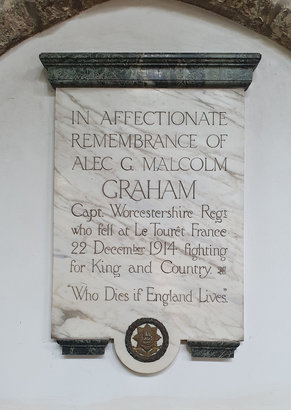 IN AFFECTIONATE
REMEMBRANCE OF
ALEC G. MALCOLM
GRAHAM
Capt. Worcestershire Regt
who fell at Le Tourêt France
22 December 1914 fighting
for King and Country.
"Who Dies if England Lives."